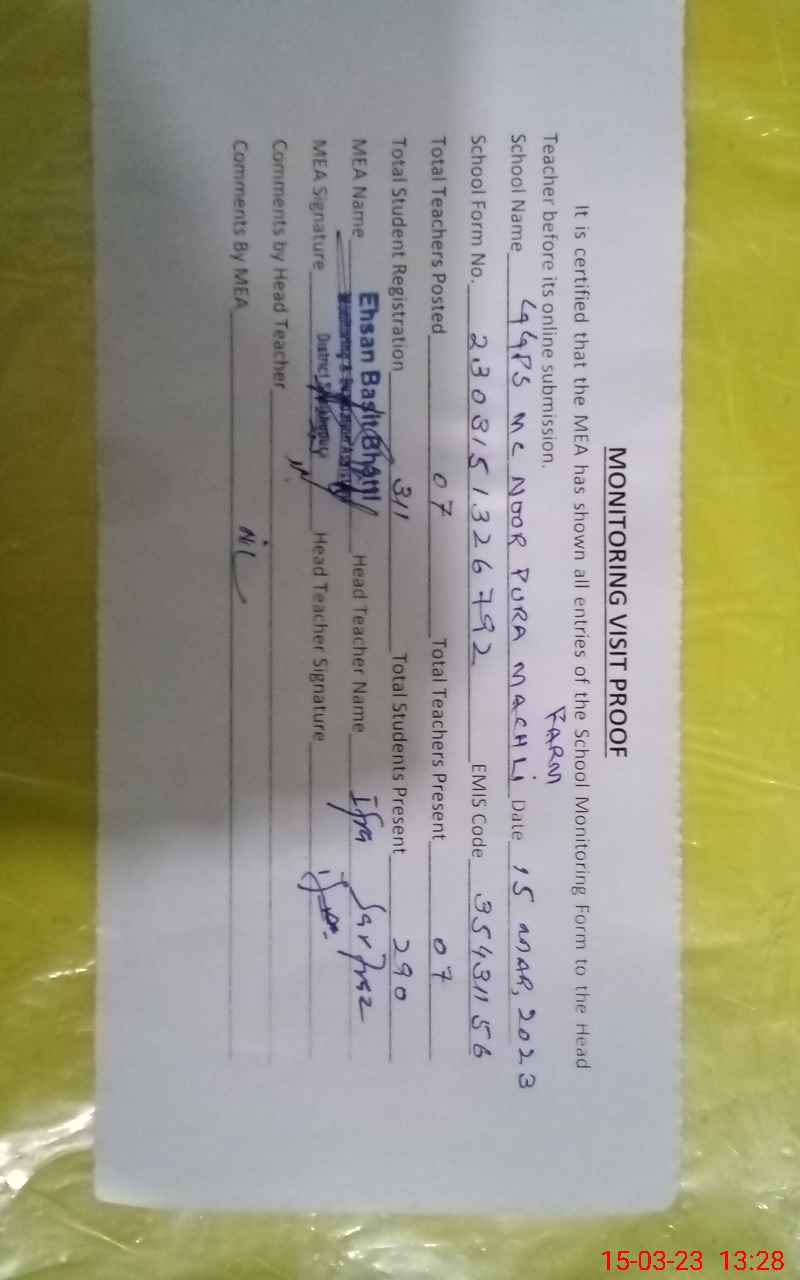 MONITORING VISIT PROOF
It is certified that the MEA has shown all entries of the School Monitoring Form to the Head
Teacher before its online submission.
FARM
School Name GGPS MC NOOR PURA MACHLI Date 15 MAR, 2023
School Form No. 2308151326792 EMIS Code 35431156
Total Teachers Posted 07 Total Teachers Present 07
Total Student Registration 311 Total Students Present 290
MEA Name Ehsan Basit Bhatti Head Teacher Name Ifra Sarfraz
Monitoring & Evaluation Assistant
MEA Signature District Head Teacher Signature
Comments by Head Teacher
Comments By MEA NiL
15-03-23 13:28